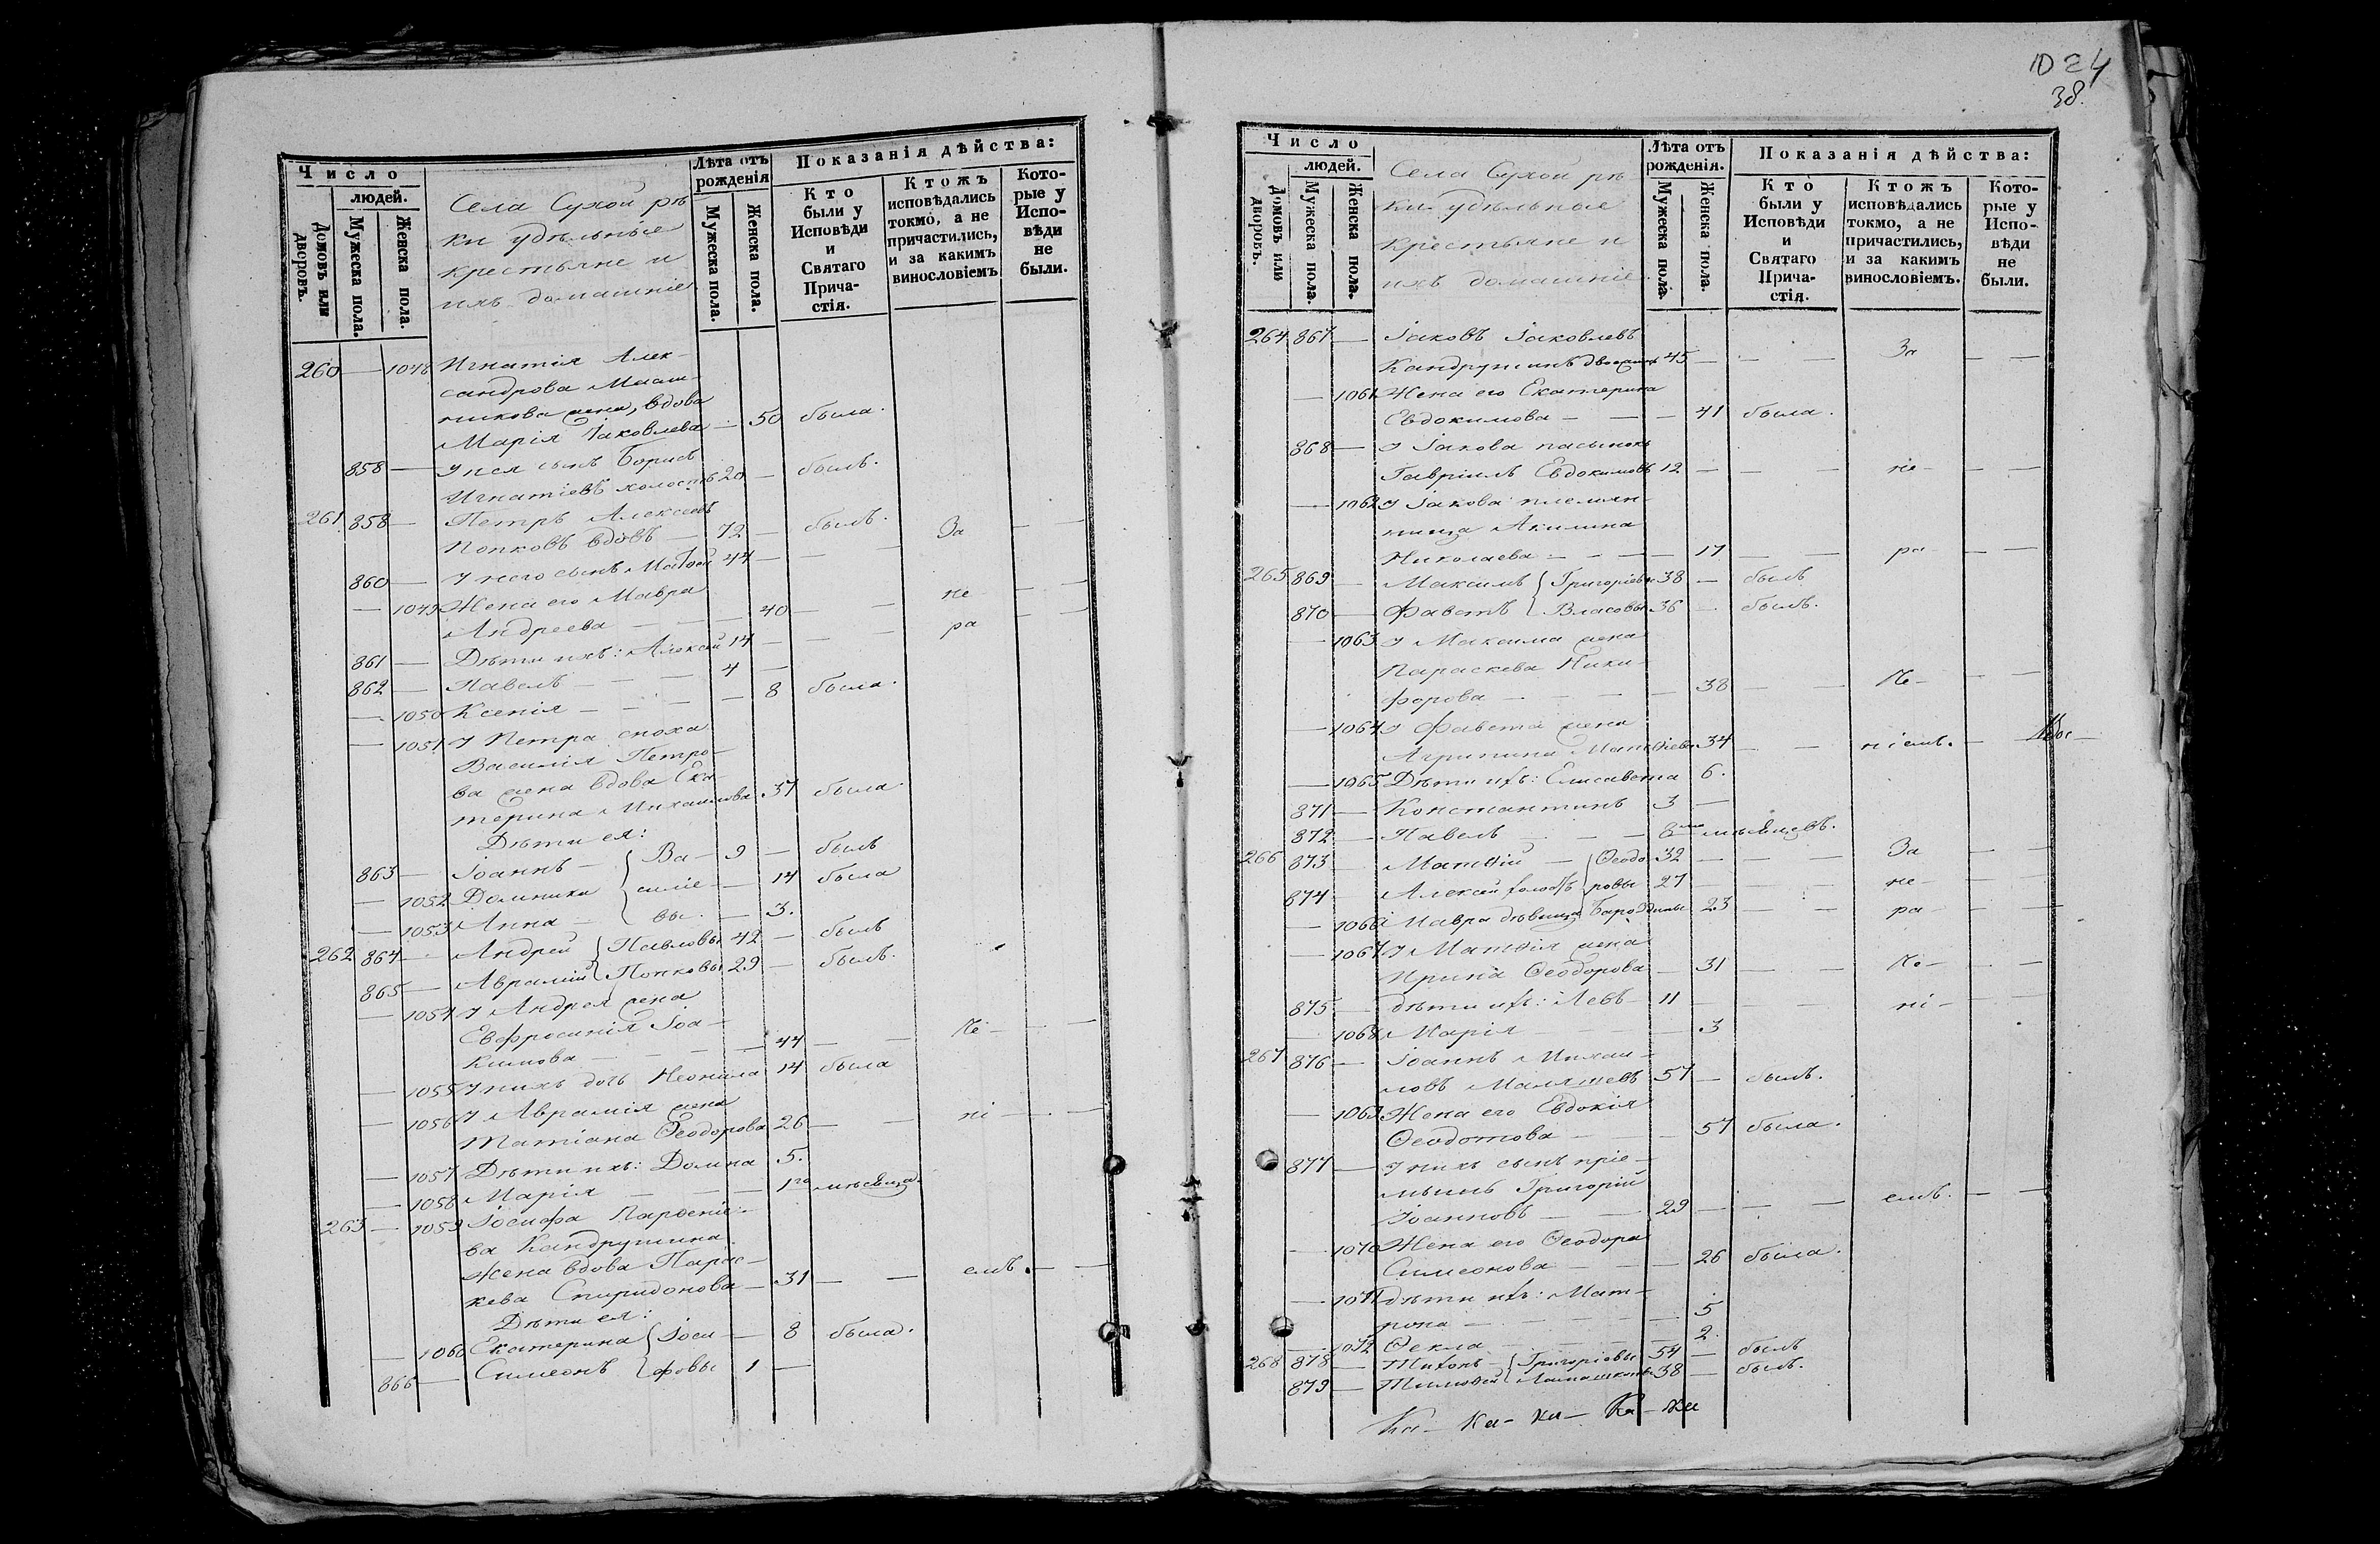 Число
людей.
Домовъ или дворовъ.
Мужеска пола.
Женска пола.
Села Сухой рѣ-
ки удѣльные
крестьяне и
ихъ домашніе
Лѣта отъ рожденія
Мужеска пола.
Женска пола.
Показанія дѣйства:
Кто были у Исповѣди и Святаго Причастія.
Ктожъ исповѣдались токмо, а не причастились, и за какимъ винословіемъ
Которые у Исповѣди не были.
260 — 1048 Игнатія Алек-
сандрова
жена, вдова
Марія Іаковлева — 50 была.
858 — У нея сынъ Борисъ
Игнатіевъ холостъ 20 — былъ.
261 858 — Петръ Алексеевъ
Попковъ вдовъ — 72 — былъ.
860 — У него сынъ Матѳей 44 — — — За — —
— 1049 Жена его Мавра
Андреева — — — 40 — — не — —
861 — Дѣти ихъ: Алексей 14 — — — ра — —
862 — Павелъ — — — 4 —
— 1050 Ксенія — — — — 8 была.
— 1051 У Петра сноха
Василія Петро-
ва жена вдова Ека-
терина Михаилова 37 была
Дѣти ея:
863 — Іоаннъ — Ва- 9 — былъ
— 1052 Домника силіе- — 14 была
— 1053 Анна — вы. — 3.
262 864 — Андрей Павловы 42 — былъ
865 — Аврамій Попковы 29 — былъ.
— 1054 У Андрея жена
Евфросинія Іоа-
кимова — — — — 44 — — Не — — —
— 1055 У нихъ дочь Неонила 14 была
— 1056 У Аврамія жена
Татіана Ѳеодорова 26 — — ні — — —
— 1057 Дѣти ихъ: Домна 5.
— 1058 Марія — — — 1го мѣсяца.
263 — 1059 Іосифа Парѳеніе-
ва Кандрушина
жена вдова Парас-
кева Спиридонова — 31 — — емъ. — —
Дѣти ея:
— 1060 Екатерина Іоси- — 8 была.
866 — Симеонъ фовы 1 —
1024
38.
Число
людей.
Домовъ или дворовъ.
Мужеска пола.
Женска пола.
Села Сухой рѣ-
ки удѣльные
крестьяне и
ихъ домашніе
Лѣта отъ рожденія.
Мужеска пола.
Женска пола.
Показанія дѣйства:
Кто были у Исповѣди и Святаго Причастія.
Ктожъ исповѣдались токмо, а не причастились, и за какимъ винословіемъ.
Которые у Исповѣди не были.
264 867 — Іаковъ Іаковлевъ
Кандрушинъ 45 — — — За — —
— 1061 Жена его Екатерина
Евдокимова — — — 41 была.
868 — У Іакова пасынокъ
Гавріилъ Евдокимовъ 12 — — — не — — —
— 1062 У Іакова племян-
ница Акилина
Николаева — — — — 17 — — ра — — —
265 869 — Максимъ Григоріевы 38 — былъ
870 — Фавстъ Власовы 36 — былъ.
— 1063 У Максима жена
Параскева Ники-
форова — — — — 38 — — Не — — —
— 1064 У Фавста жена
Агрипина Матѳіева 34 — — ніемъ. —
— 1065 Дѣти ихъ: Елисавета 6.
871 — Константинъ 3 —
872 — Павелъ — — — 8ми мѣсяцевъ.
266 873 — Матѳій — Ѳеодо- 32 — — — За — —
874 — Алексей холостъ ровы 27 — — — не — — —
— 1066 Мавра дѣвица Бароздины 23 — — ра — — —
— 1067 У Матѳія жена
Ирина Ѳеодорова — 31 — — Не — — —
875 — дѣти ихъ: Левъ — 11 — — — ні — — —
— 1068 Марія — — — — 3
267 876 — Іоаннъ Михаи-
ловъ Малышевъ 57 — былъ.
— 1069 Жена его Евдокія
Ѳеодотова — — — 57 была.
877 — У нихъ сынъ пріе-
мышъ Григорій
Іоанновъ — — 29 — — — емъ. — —
— 1070 Жена его Ѳеодора
Симеонова — — — 26 была.
— 1071 дѣти ихъ: Мат-
рона — — — — 5
— 1072 Ѳекла — — — — 2.
268 878 — Тихонъ — Григоріевы 54 — былъ
879 — Тимоѳей 38 — былъ.